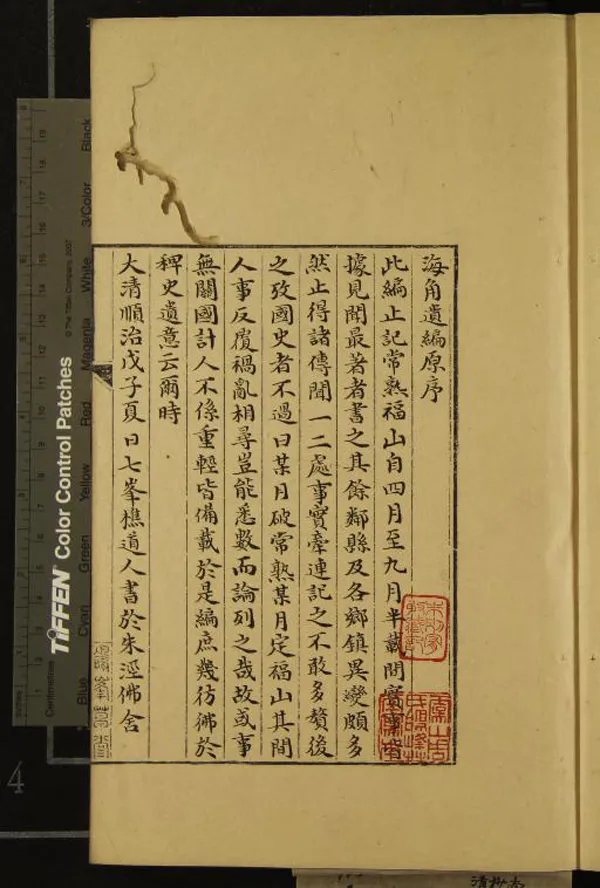 海角遺編原序
此編止記常熟福山自四月至九月半載間實事皆
據見聞最著者書之其餘鄰縣及各鄉鎮異變頗多
然止得諸傳聞一二處事實牽連記之不敢多贅後
之攷國史者不過曰某月破常熟某月定福山其間
人事反覆禍亂相尋豈能悉數而論列之哉故或事
無關國計人不係重輕皆備載於是編庶幾彷彿於
稗史遺意云爾時
大清順治戊子夏日七峯樵道人書於朱涇佛舍
TIFFEN Color Control Patches
© The Tiffen Company, 2007
Blue Cyan Green Yellow Red Magenta White 3/Color Black
Inches
Centimetres
4